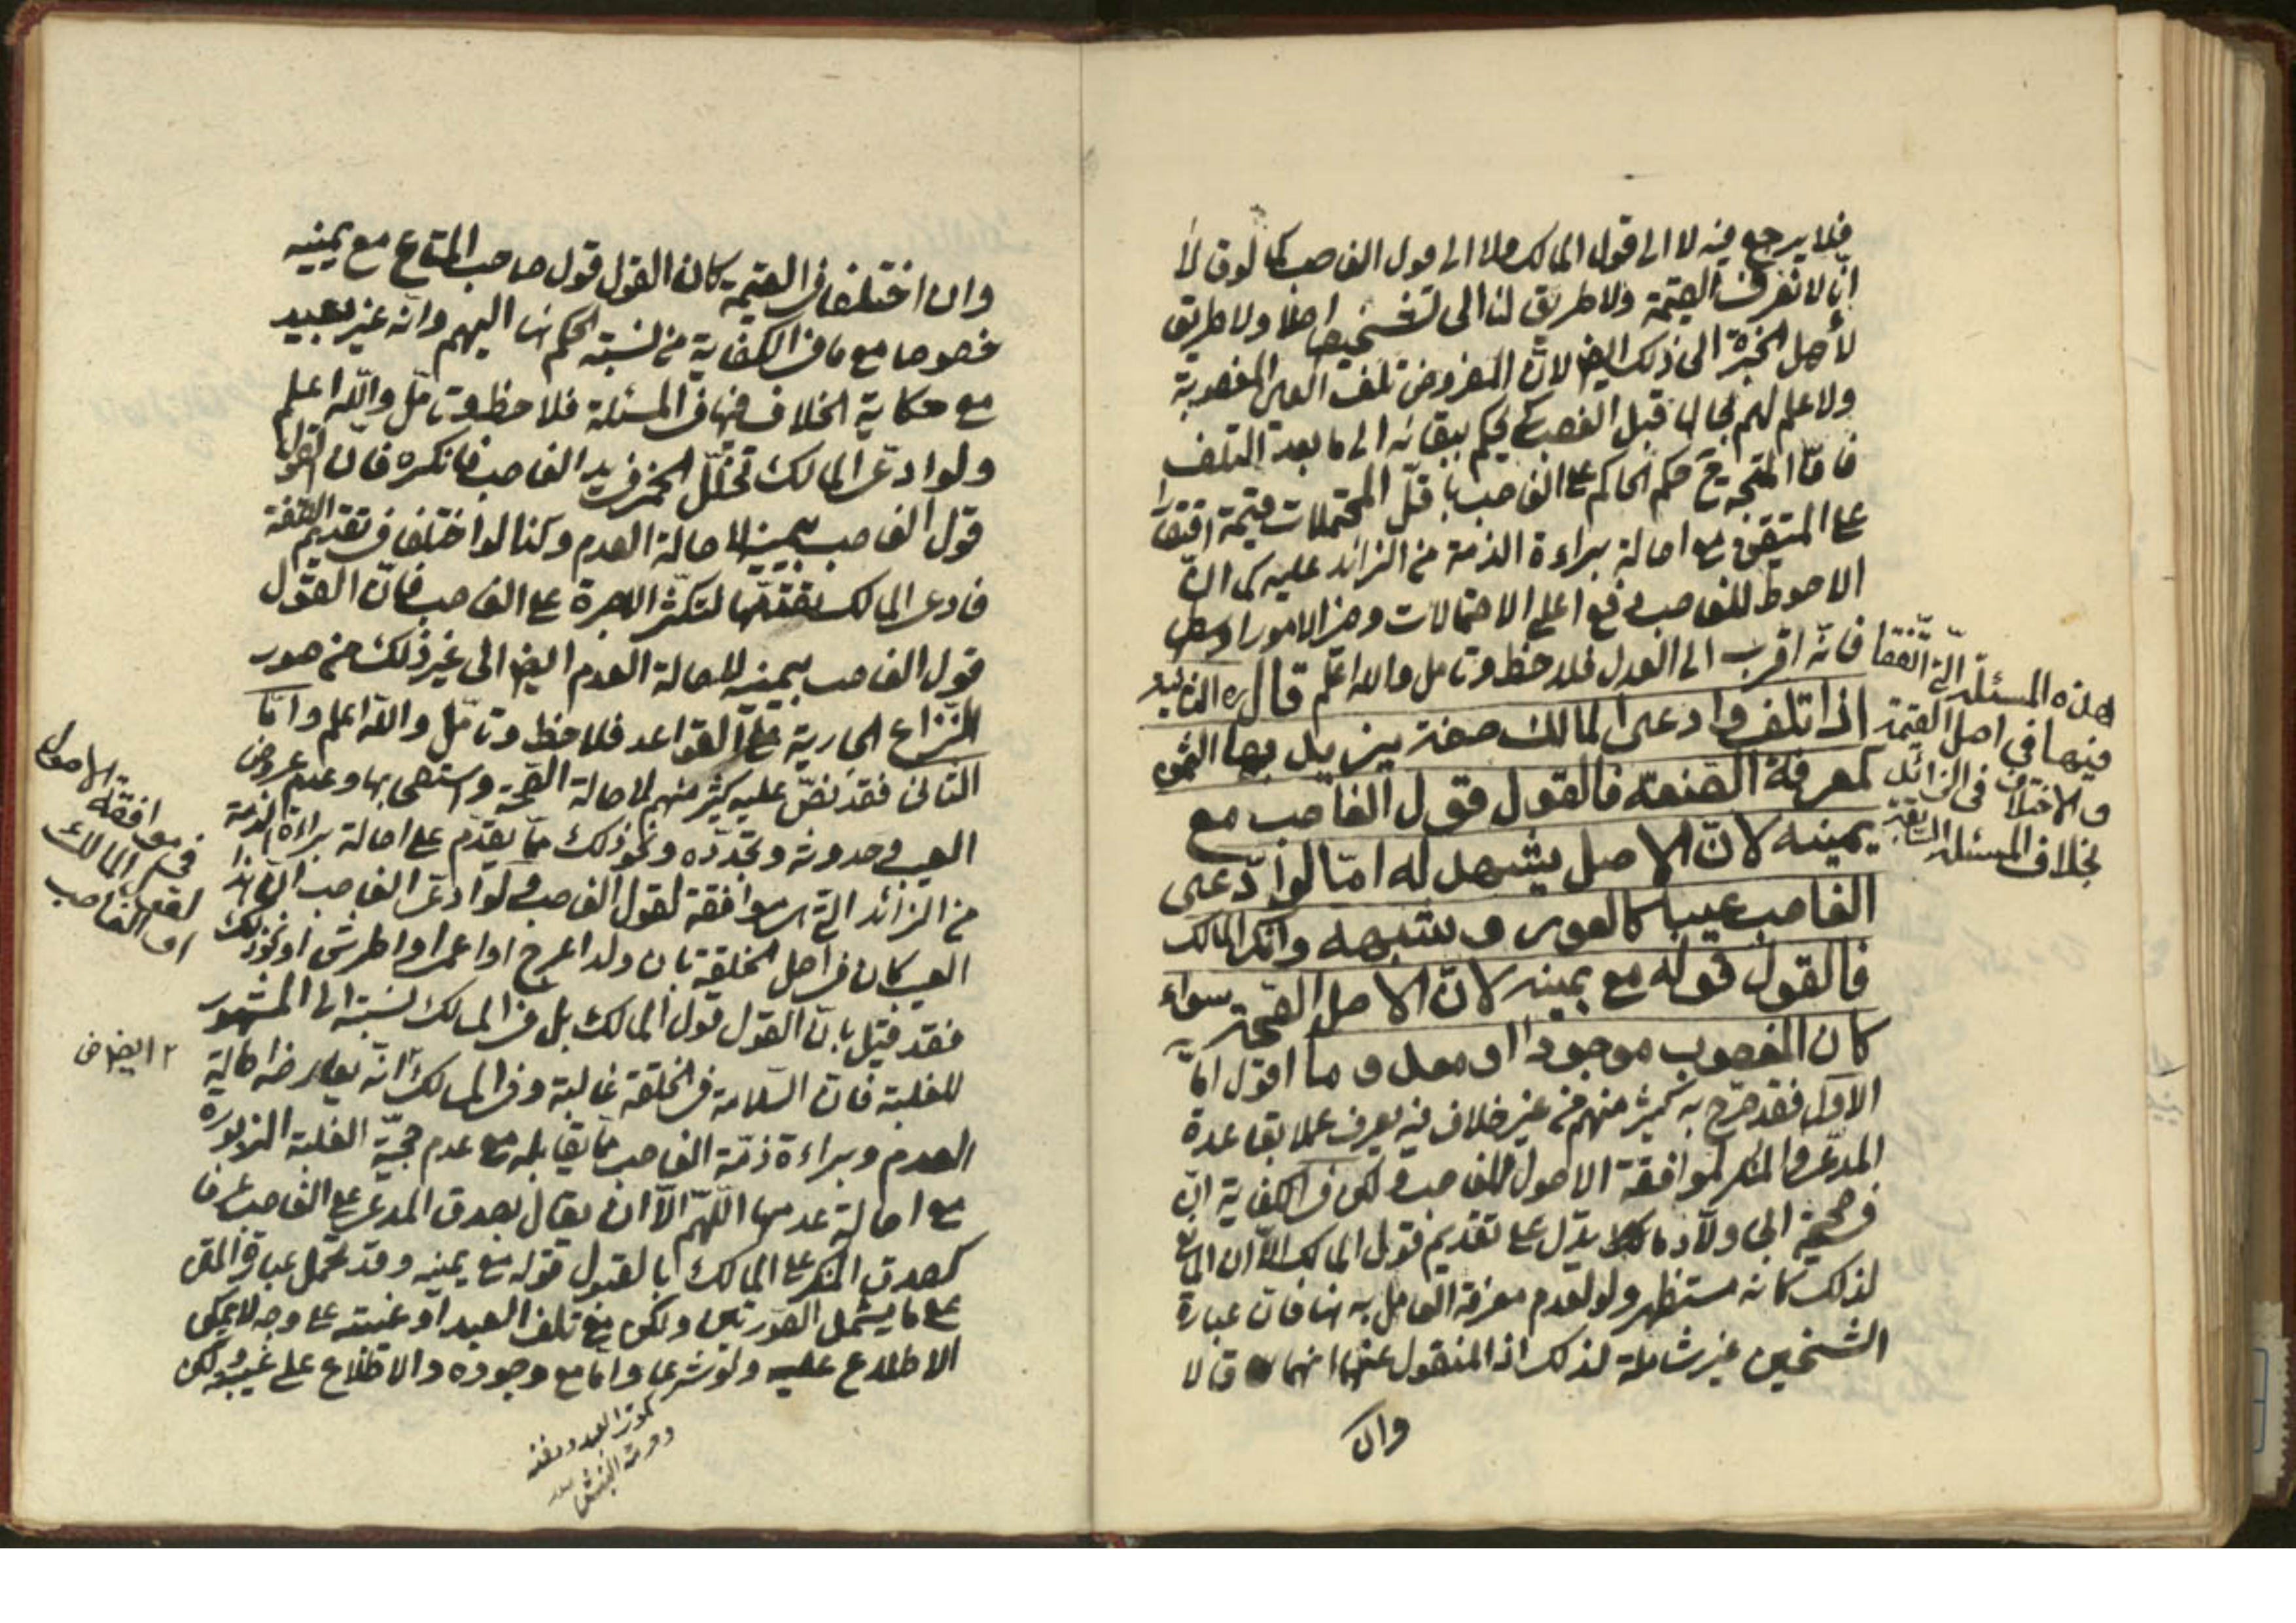 فلا يرجع فيه لا الى قول المالك ولا الى قول الغاصب كما لو قالا
انّا لا نعرف القيمة ولا طريق لنا الى تشخيصها اصلا ولا طريق
لأهل الخبرة الى ذلك ايضا لانّ المفروض تلف العين المغصوبة
ولا علم لهم بحالها قبل الغصب كى يحكم ببقائه الى ما بعد التلف
فامّا المتجه ح حكم الحاكم على الغاصب باقلّ المحتملات قيمة اقتصارا
على المتيقن مع اصالة براءة الذمة من الزائد عليه كما انّ
الاحوط للغاصب دفع اعلى الاحتمالات وخير الامور اوسطها
فانّه اقرب الى العدل فلاحظ وتامل والله اعلم قال ره الثانية
اذا تلف وادعى المالك صفة يزيد بها الثمن
كمعرفة الصنعة فالقول قول الغاصب مع
يمينه لانّ الاصل يشهد له امّا لو ادّعى
الغاصب عيبا كالعور وشبهه وانكر المالك
فالقول قوله مع يمينه لانّ الاصل الصّحة سواء
كان المغصوب موجودا او معدوما اقول امّا
الاوّل فقد صرّح به كثير منهم من غير خلاف فيه يعرف عملا بقاعدة
المدّعى والمنكر لموافقة الاصول للغاصب ولكن فى الكفاية انّ
فى صحيحة ابى ولّاد ما يدلّ على تقديم قول المالك الّا ان المانع
لذلك كانه مستظهر ولو لعدم معرفة القائل به فان عبارة
الشيخين غير شاملة لذلك اذ المنقول عنهما انهما قالا
وان
هذه المسئلة الّتى اتّفقا
فيها فى اصل القيمة
والاختلاف فى الزائد
بخلاف المسئلة السابقة
وان اختلفا فى القيمة كان القول قول صاحب المتاع مع يمينه
خصوصا مع ما فى الكفاية من نسبته الحكم اليهم وانه غير بعيد
مع حكاية الخلاف فى المسئلة فلاحظ وتامّل والله اعلم
ولو ادعى المالك تخلّل الخمر فى يد الغاصب فانكره فان القول
قول الغاصب بيمينه لاصالة العدم وكذا لو اختلفا فى تقديم الصفة
فادعى المالك تقدمها لتكثر الاجرة على الغاصب فانّ القول
قول الغاصب بيمينه لاصالة العدم ايضا الى غير ذلك من صور
النّزاع الجارية على القواعد فلاحظ وتامّل والله اعلم وامّا
الثانى فقد نصّ عليه كثير منهم لاصالة الصّحة واستصحابها وعدم عروض
العيب وحدوثه وتجدّده ونحو ذلك ممّا يقدّم على اصالة براءة الذمة
من الزائد الّتى موافقة لقول الغاصب ولو ادعى الغاصب انّ هذا
العيب كان فى اصل الخلقة بان ولد اعرج او اعمى او اطرش او نحو ذلك
فقد قيل بانّ القول قول المالك بل فى المسالك نسبته الى المشهور
للغلبة فان السّلامة فى الخلقة غالبة وفى المسالك انّه يعارضه اصالة
العدم وبراءة ذمّة الغاصب ممّا يقابله مع عدم حجيّة الغلبة المزبورة
مع اصالة عدمها اللّهمّ الّا ان يقال بصدق المدعى على الغاصب عرفا
كصدق المنكر على المالك بالقبول قوله مع يمينه وقد تحمل عبارة المتن
على ما يشمل الصّورتين ولكن مع تلف العبد او غيبته على وجه لا يمكن
الاطلاع عليه ولو شرعا وامّا مع وجوده والاطلاع على عيبه ولكن
موافقة الاصول
فى المالك
لقول
او الغاصب
ايضا
كموت العبد ودفنه
وحرمة النبش